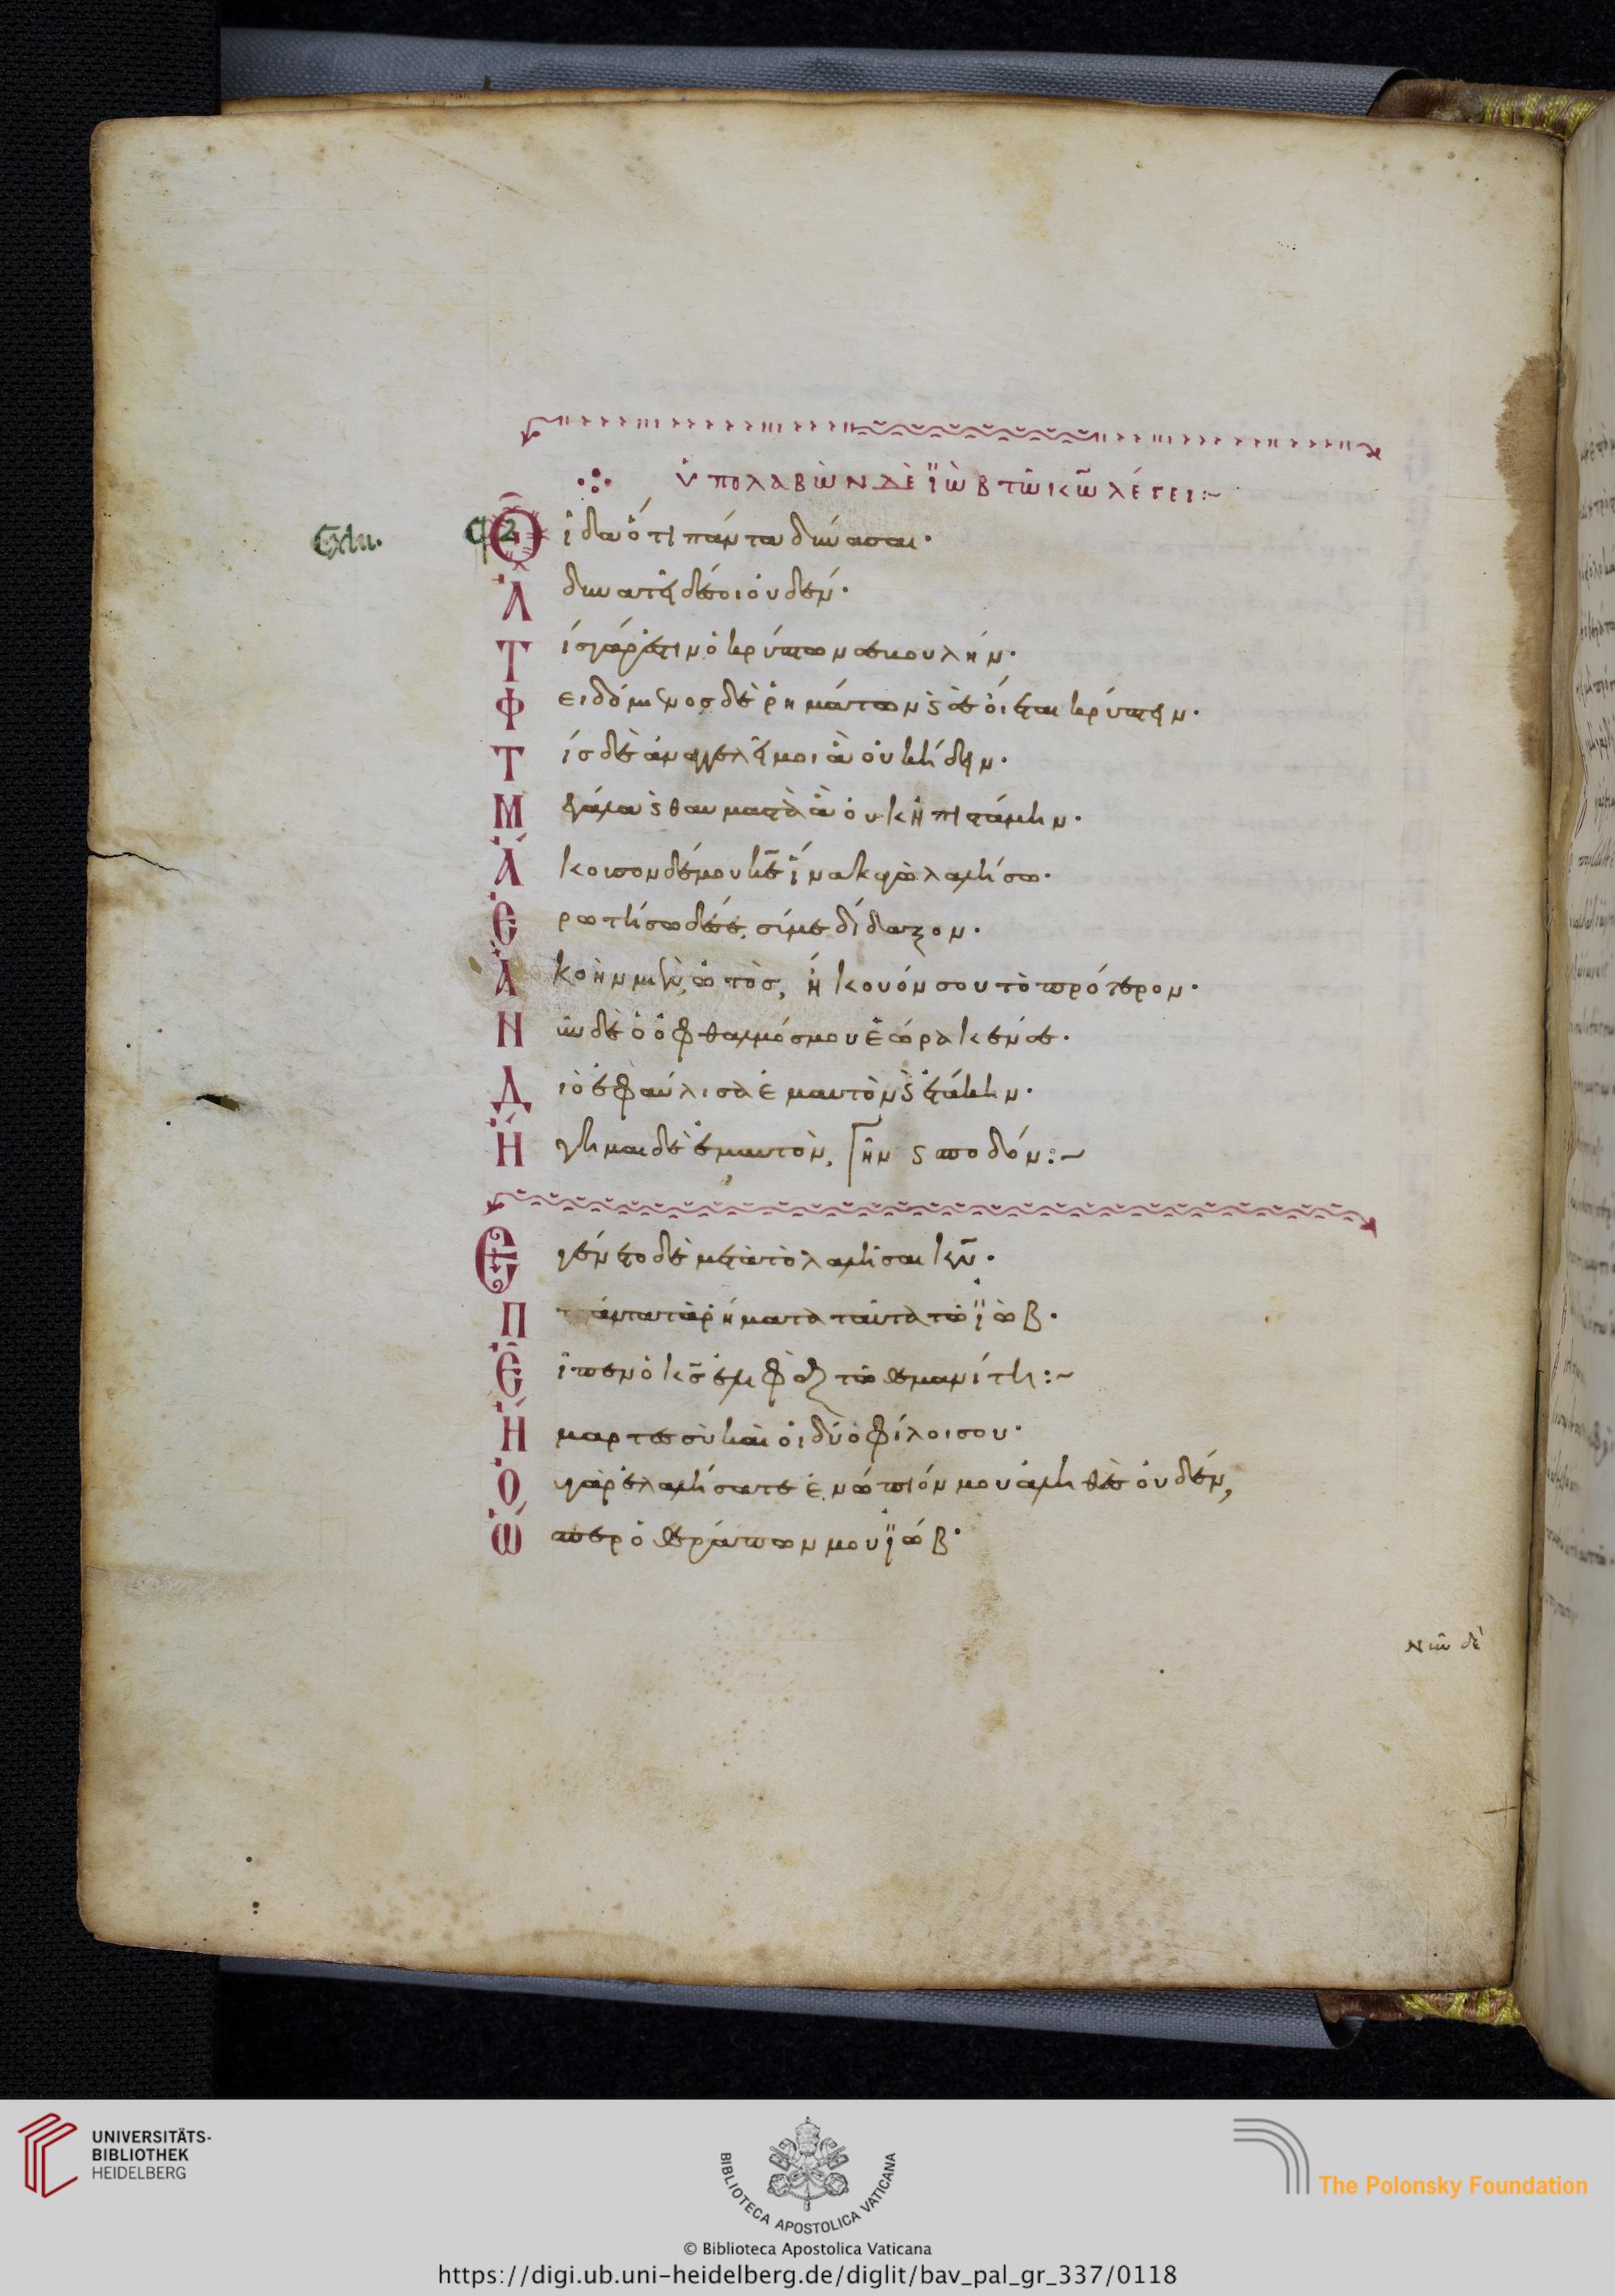 ὑπολαβὼν δὲ ϊὼβ τῶ κ̅ω̅ λέγει:~
Cdu.
Οἶδα ὅτι πάντα δύνασαι·
Ἀδυνατεῖ δέ σοι οὐδέν·
Τίς γάρ ἐστιν ὁ κρύπτων σε βουλήν·
Φειδόμενος δὲ ῥημάτων ϗ σὲ οἴεται κρύπτειν·
Τίς δὲ ἀναγγελεῖ μοι ἃ οὐκ ἤδειν·
Μεγάλα ϗ θαυμαστὰ ἃ οὐκ ἠπιστάμην·
Ἄκουσον δέ μου κ̅ε̅ ἵνα κἀγὼ λαλήσω·
Ἐρωτήσω δέ σε, σύ με δίδαξον·
Ἀκοὴν μὲν ὠτὸς, ἤκουόν σου τὸ πρότερον·
Νῦν δὲ ὁ ὀφθαλμός μου ἑώρακέν σε·
Διὸ ἐφαύλισα ἐμαυτὸν ϗ ἐτάκην·
Ἥγημαι δὲ ἐμαυτὸν, γῆν ϗ σποδόν:~
Ἐγένετο δὲ μετὰ τὸ λαλῆσαι κ̅ν̅·
Πάντα τὰ ῥήματα ταῦτα τῶ ϊώβ·
Εἶπεν ὁ κ̅ς̅ ἐλιφὰζ τῶ θεμανίτη:~
Ἥμαρτες σὺ καὶ οἱ δύο φίλοι σου·
Οὐ γὰρ ἐλαλήσατε ἐνώπιόν μου ἀληθὲς οὐδέν,
Ὥσπερ ὁ θεράπων μου ϊώβ·
Νῦν δὲ
UNIVERSITÄTS-
BIBLIOTHEK
HEIDELBERG
BIBLIOTECA APOSTOLICA VATICANA
The Polonsky Foundation
© Biblioteca Apostolica Vaticana
https://digi.ub.uni-heidelberg.de/diglit/bav_pal_gr_337/0118